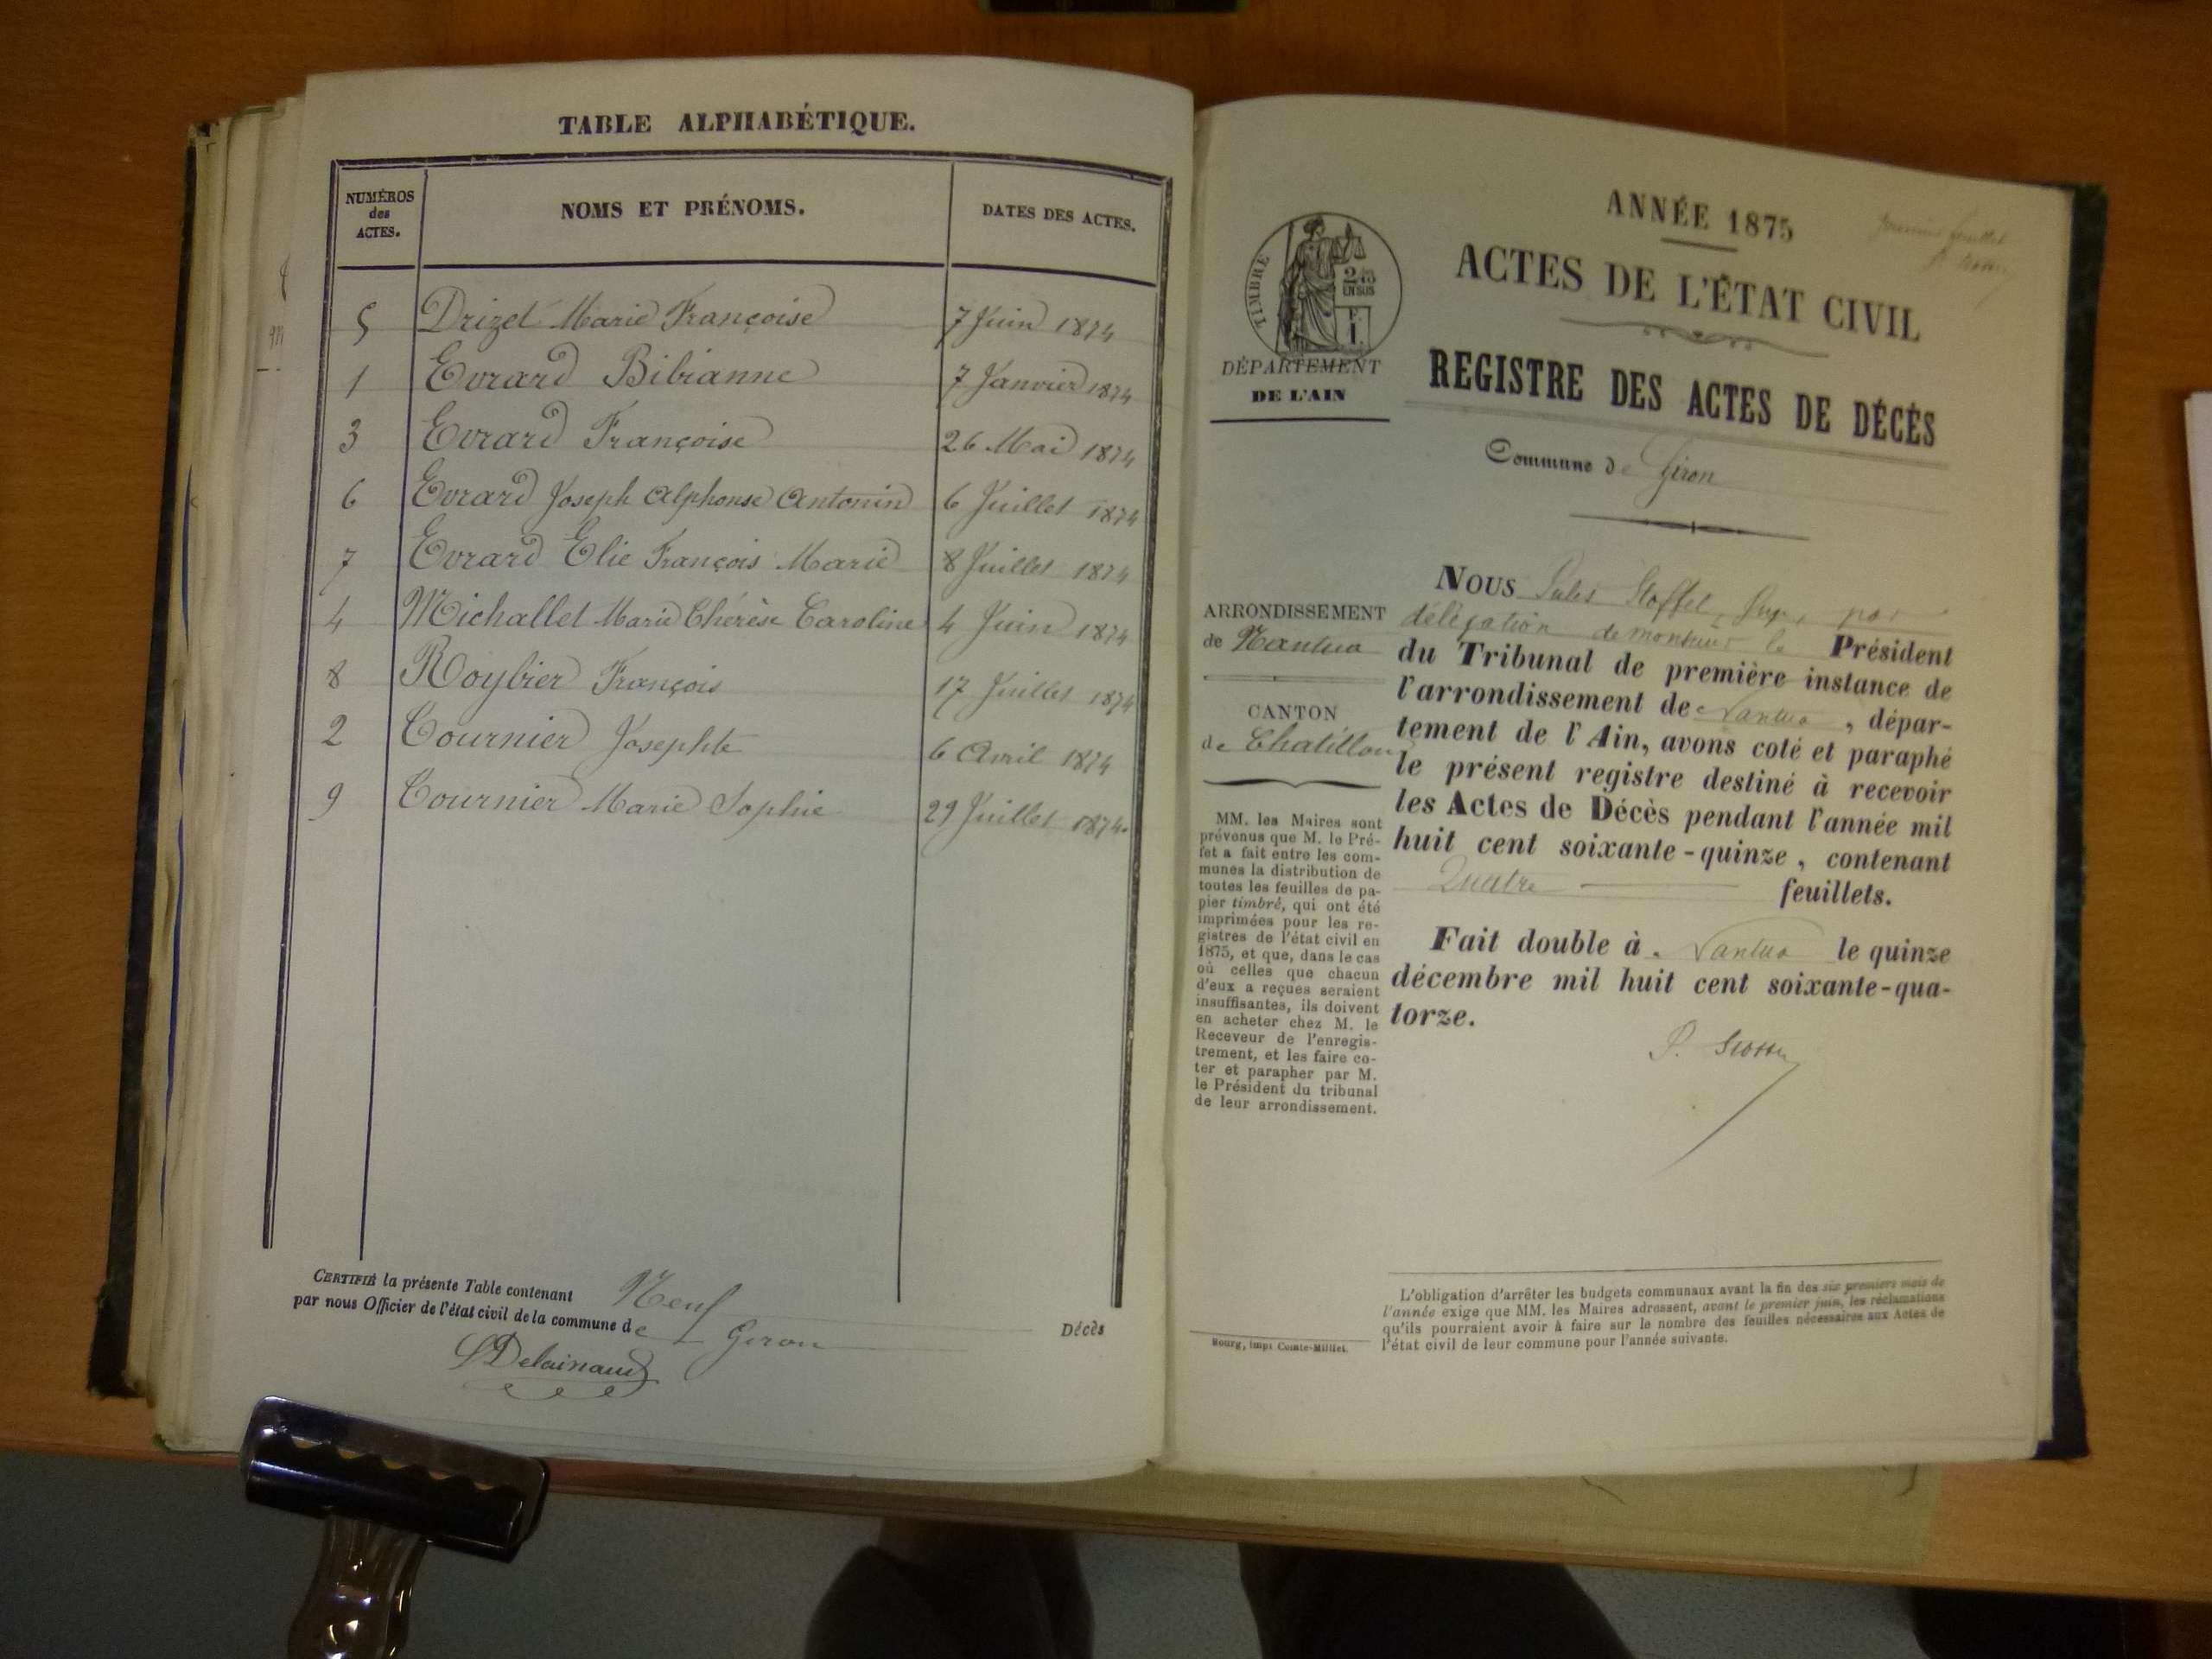 TABLE ALPHABÉTIQUE.
NUMÉROS
des
ACTES.
NOMS ET PRÉNOMS.
DATES DES ACTES.
5 Drizet Marie Françoise 7 Juin 1874
1 Evrard Bibianne 7 Janvier 1874
3 Evrard Françoise 26 Mai 1874
6 Evrard Joseph Alphonse Antonin 6 Juillet 1874
7 Evrard Elie François Marie 8 Juillet 1874
4 Michallet Marie Thérèse Caroline 4 Juin 1874
8 Roybier François 17 Juillet 1874
2 Tournier Josephte 6 Avril 1874
9 Tournier Marie Sophie 29 Juillet 1874.
CERTIFIÉ la présente Table contenant Neuf Décès
par nous Officier de l'état civil de la commune de Giron
Delainaud
ANNÉE 1875
ACTES DE L'ÉTAT CIVIL
REGISTRE DES ACTES DE DÉCÈS
Commune de Giron
TIMBRE
2/10
EN SUS
F.
1.
DÉPARTEMENT
DE L'AIN
ARRONDISSEMENT
de Nantua
CANTON
de Chatillon
MM. les Maires sont
prévenus que M. le Pré-
fet a fait entre les com-
munes la distribution de
toutes les feuilles de pa-
pier timbré, qui ont été
imprimées pour les re-
gistres de l'état civil en
1875, et que, dans le cas
où celles que chacun
d'eux a reçues seraient
insuffisantes, ils doivent
en acheter chez M. le
Receveur de l'enregis-
trement, et les faire co-
ter et parapher par M.
le Président du tribunal
de leur arrondissement.
NOUS Jules Stoffel, Juge, par
délégation de monsieur le Président
du Tribunal de première instance de
l'arrondissement de Nantua, dépar-
tement de l'Ain, avons coté et paraphé
le présent registre destiné à recevoir
les Actes de Décès pendant l'année mil
huit cent soixante-quinze, contenant
Quatre feuillets.
Fait double à Nantua le quinze
décembre mil huit cent soixante-qua-
torze.
L'obligation d'arrêter les budgets communaux avant la fin des six premiers mois de
l'année exige que MM. les Maires adressent, avant le premier juin, les réclamations
qu'ils pourraient avoir à faire sur le nombre des feuilles nécessaires aux Actes de
l'état civil de leur commune pour l'année suivante.
Bourg, impr Comte-Milliet.